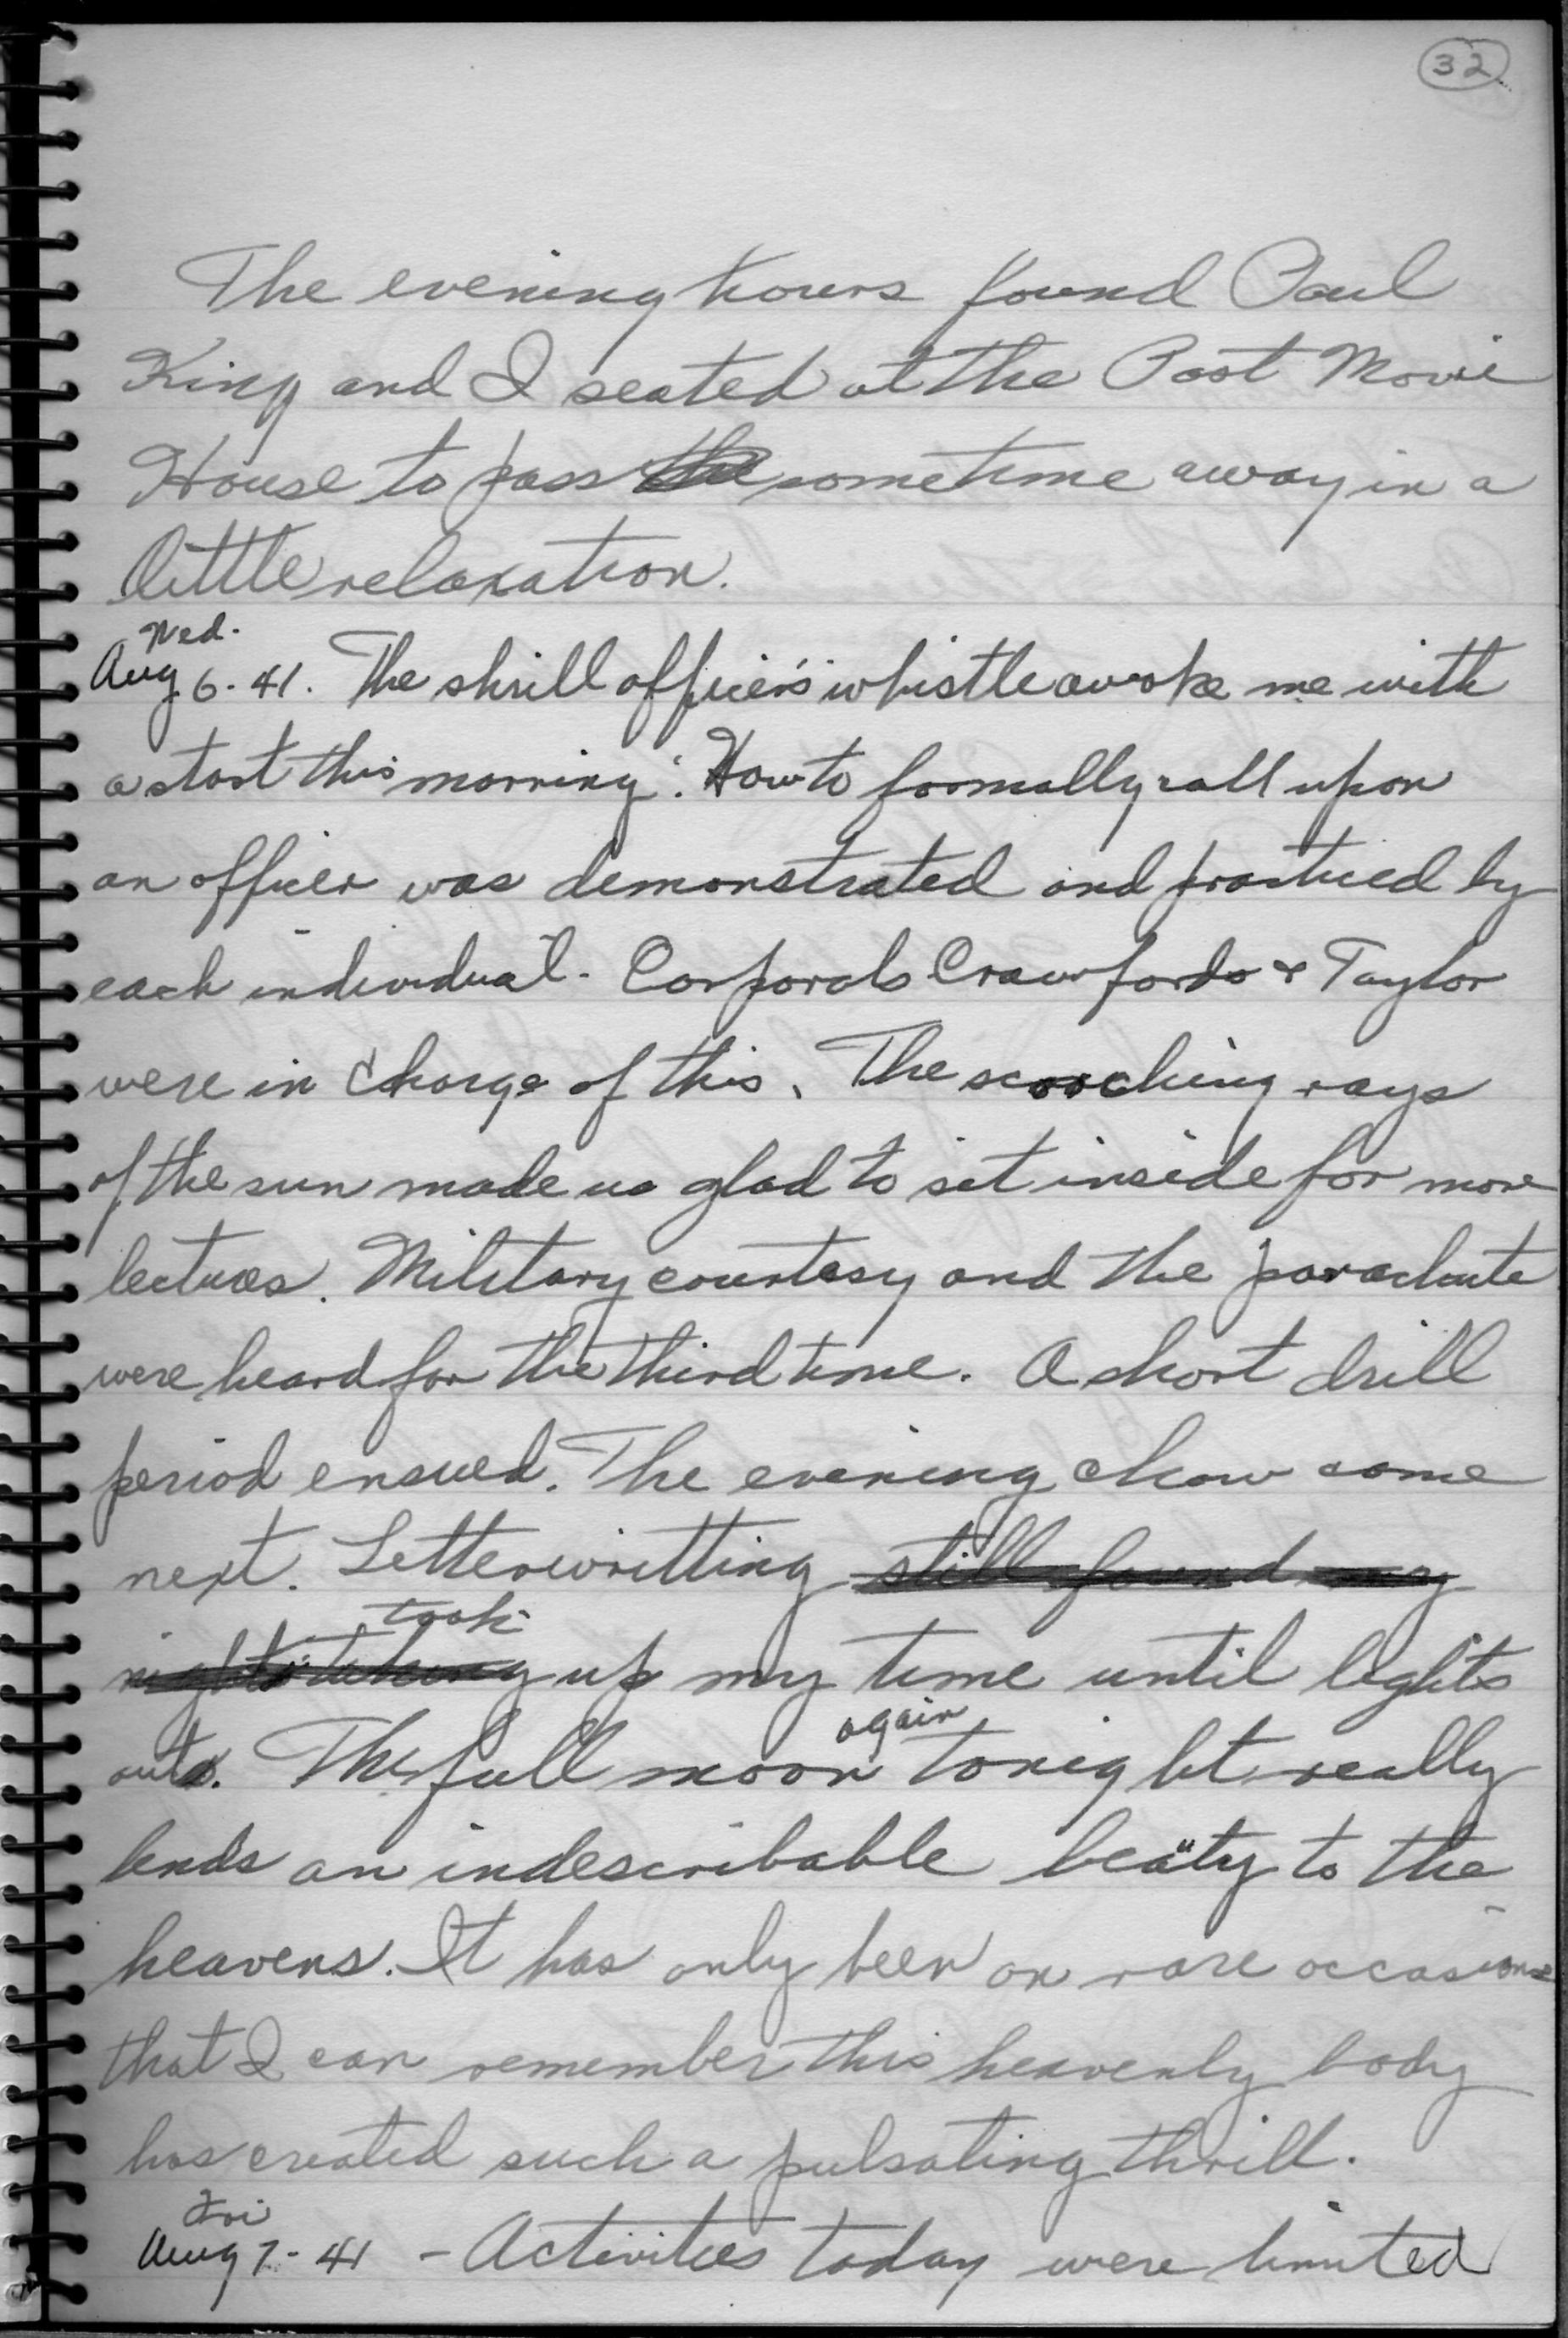 32
The evening hours found Paul
King and I seated at the Post Movie
House to pass the sometime away in a
little relaxation.
Wed.
Aug 6-41. The shrill officer's whistle awoke me with
a start this morning. How to formally call upon
an officer was demonstrated and practiced by
each individual. Corporals Crawfords & Taylor
were in charge of this. The scorching rays
of the sun made us glad to sit inside for more
lectures. Military courtesy and the parachute
were heard for the third time. A short drill
period ensued. The evening chow came
next. Letterwritting still found my
took
nights taking up my time until lights
out. The full moon again tonight really
lends an indescribable beauty to the
heavens. It has only been on rare occasions
that I can remember this heavenly body
has created such a pulsating thrill.
Fri
Aug 7-41 - Activities today were limited